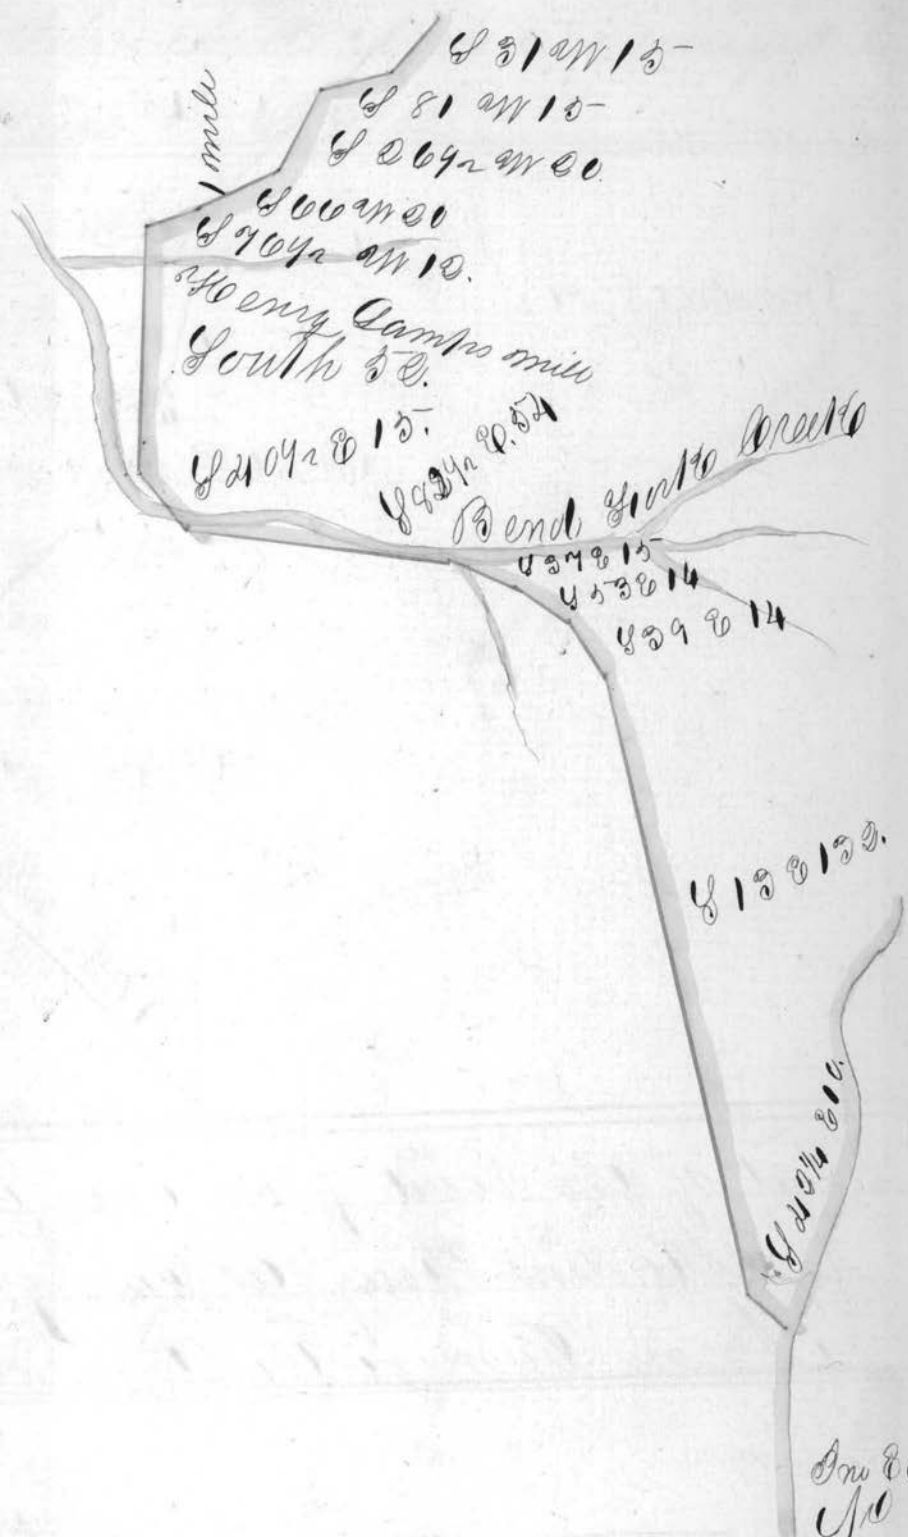 S 31 W 15
S 81 W 15
S 26½ W 20
1 mile
S 66 W 20
S 76½ W 12.
Henry Camps mill
South 52.
S 40½ E 15.
S 82½ E. 54
Bend Fork Creek
S 37 E 15
S 53 E 14
S 39 E 14
S 13 E 132.
S 43¼ E 10.